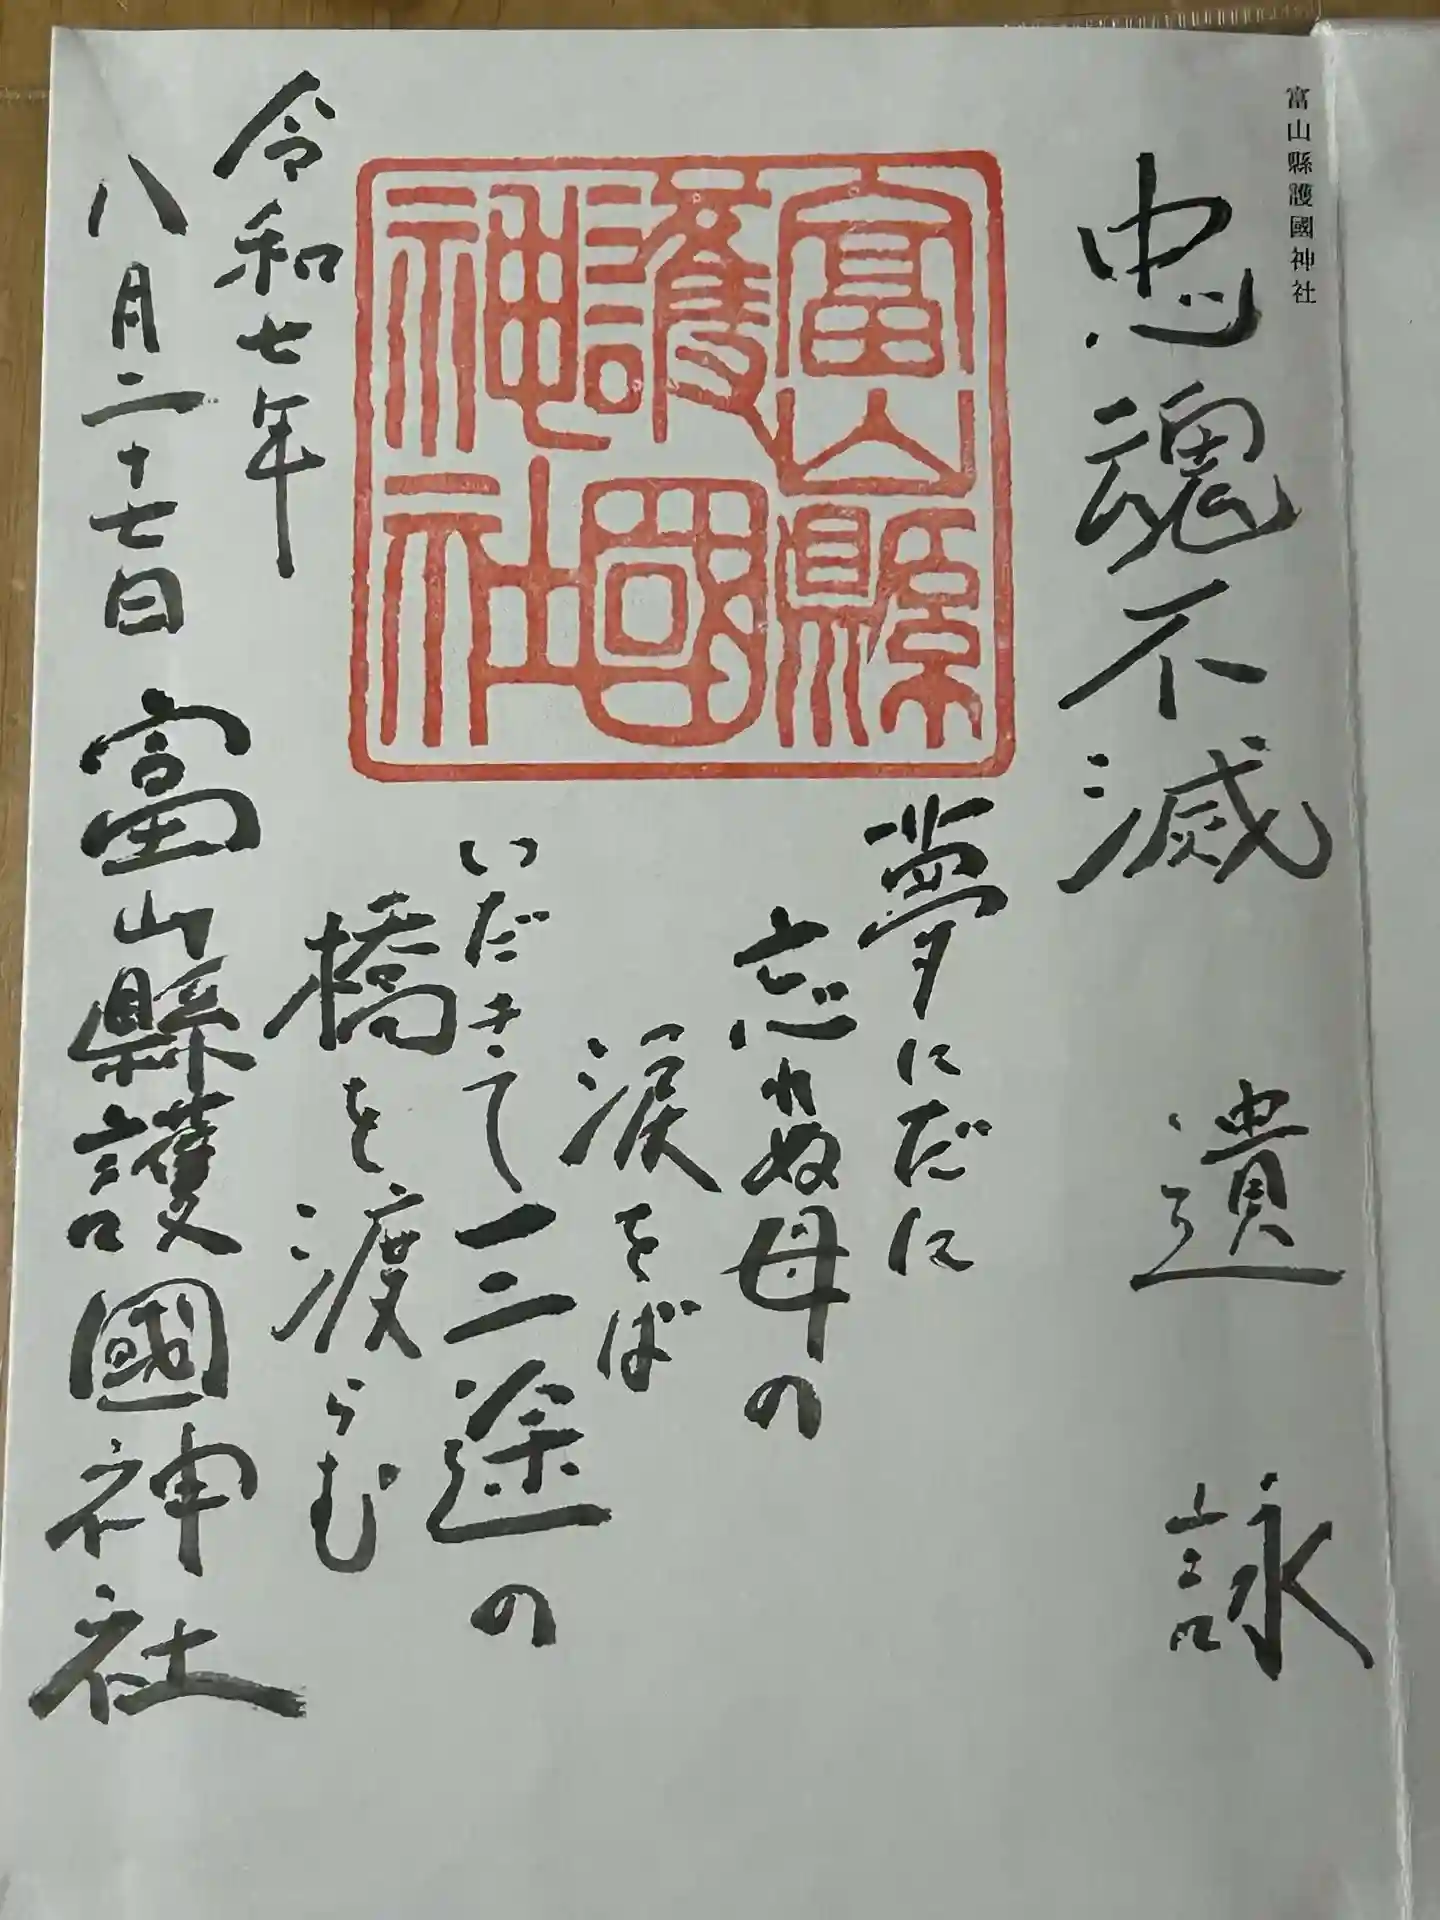 富山縣護國神社
忠魂不滅　遺詠
富山縣
護國
神社
夢にだに
忘れぬ母の
涙をば
いだきて三途の
橋を渡らむ
令和七年
八月二十七日　富山縣護國神社